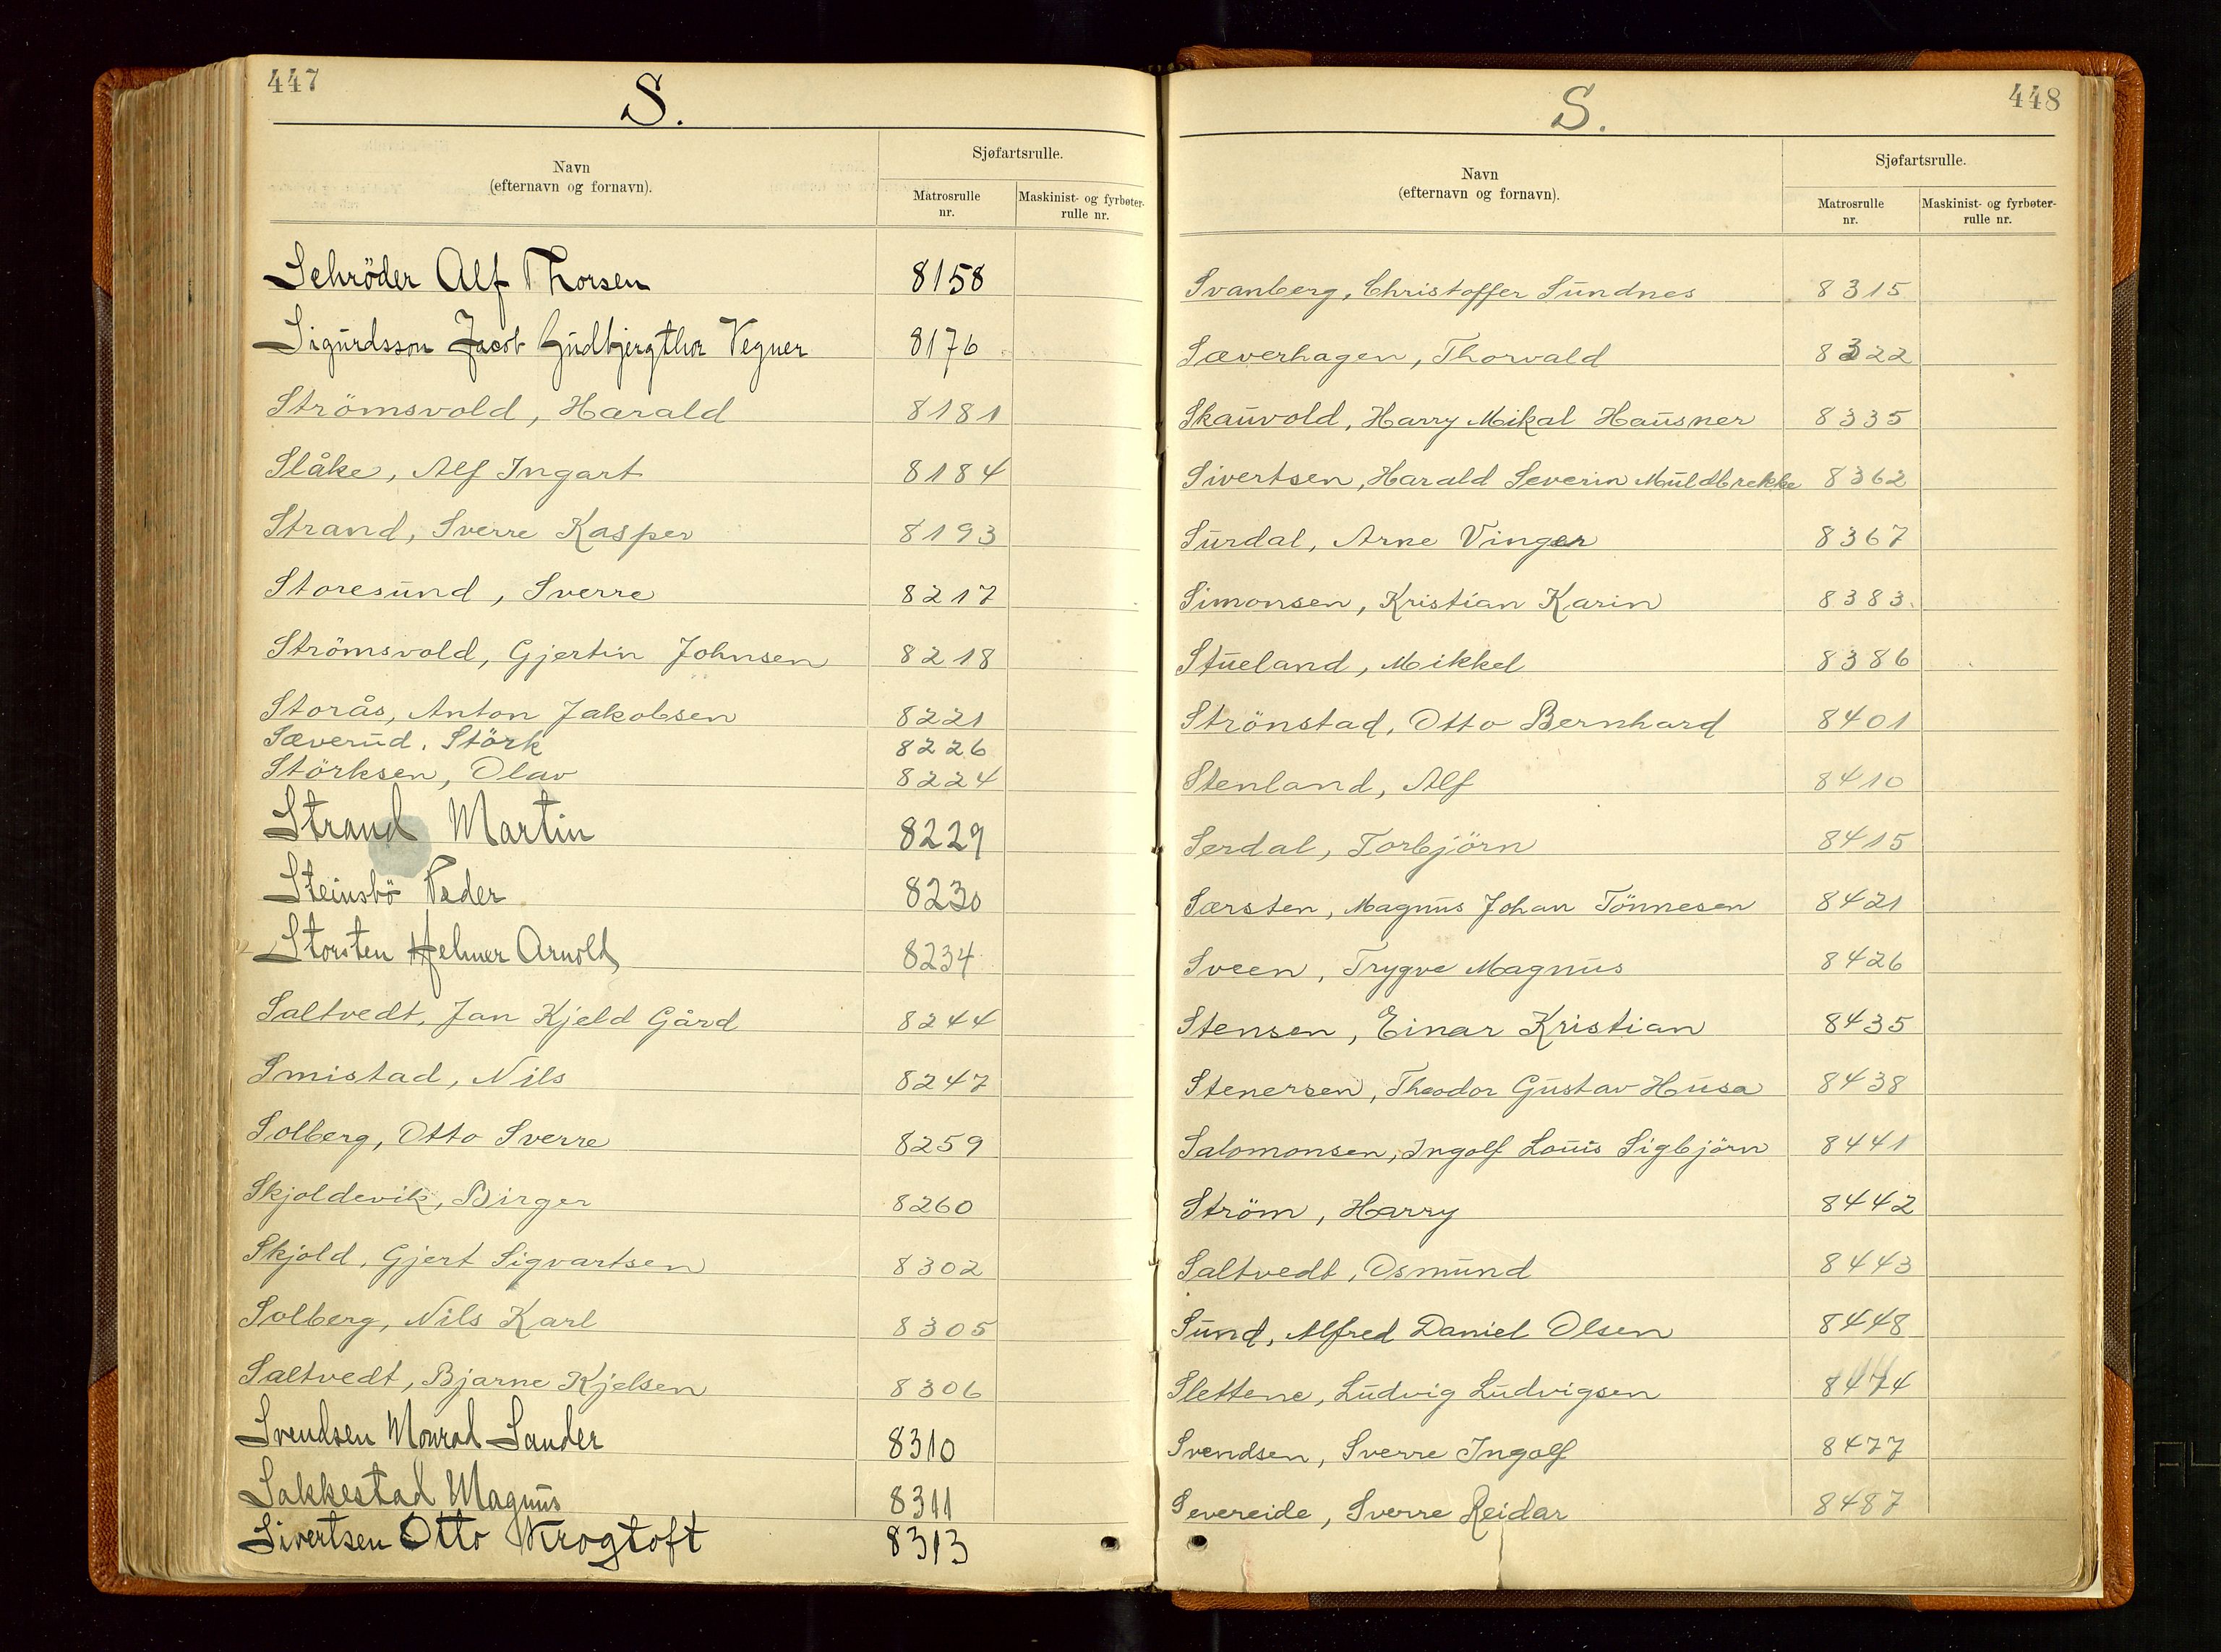 447
S.
Navn
(efternavn og fornavn).
Sjøfartsrulle.
Matrosrulle
nr.
Maskinist- og fyrbøter-
rulle nr.
Schröder Alf Thorsen 8158
Sigurdsson Jacob Gudbjergthor Vegner 8176
Strömsvold, Harald 8181
Slåke, Alf Ingart 8184
Strand, Sverre Kasper 8193
Storesund, Sverre 8217
Strömsvold, Gjertin Johnsen 8218
Storås, Anton Jakobsen 8221
Sæverud, Störk 8226
Störksen, Olav 8224
Strand Martin 8229
Steinsbö Peder 8230
Storsten Helmer Arnold 8234
Saltvedt, Jan Kjeld Gård 8244
Smistad, Nils 8247
Solberg, Otto Sverre 8259
Skjoldevik, Birger 8260
Skjold, Gjert Sigvartsen 8302
Solberg, Nils Karl 8305
Saltvedt, Bjarne Kjelsen 8306
Svendsen Monrad Sander 8310
Sakkestad Magnus 8311
Sivertsen Otto Krogtoft 8313
448
S.
Navn
(efternavn og fornavn).
Sjøfartsrulle.
Matrosrulle
nr.
Maskinist- og fyrbøter-
rulle nr.
Svanberg, Christoffer Sundnes 8315
Sæverhagen, Thorvald 8322
Skauvold, Harry Mikal Hausner 8335
Sivertsen, Harald Severin Muldbrekke 8362
Surdal, Arne Vinger 8367
Simonsen, Kristian Karin 8383
Stueland, Mikkel 8386
Strönstad, Otto Bernhard 8401
Stenland, Alf 8410
Serdal, Torbjörn 8415
Særsten, Magnus Johan Tönnesen 8421
Sveen, Trygve Magnus 8426
Stensen, Einar Kristian 8435
Stenersen, Theodor Gustav Husa 8438
Salomonsen, Ingolf Louis Sigbjörn 8441
Ström, Harry 8442
Saltvedt, Osmund 8443
Sund, Alfred Daniel Olsen 8448
Slettene, Ludvig Ludvigsen 8474
Svendsen, Sverre Ingolf 8477
Severeide, Sverre Reidar 8487